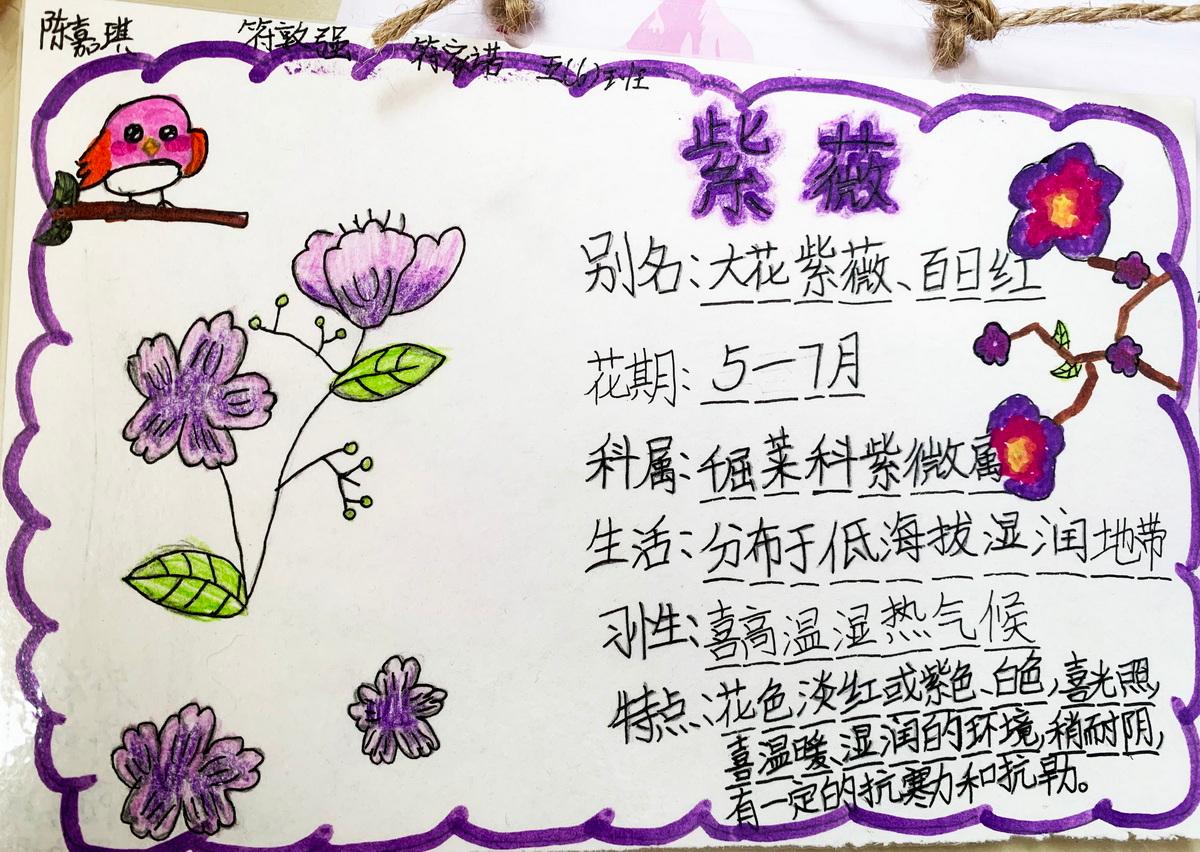 陈嘉琪 符敦强 符家诺 五(6)班
紫薇
别名：大花紫薇、百日红
花期：5—7月
科属：千屈菜科紫微属
生活：分布于低海拔湿润地带
习性：喜高温湿热气候
特点：花色淡红或紫色、白色，喜光照，
喜温暖、湿润的环境，稍耐阴，
有一定的抗寒力和抗旱力。